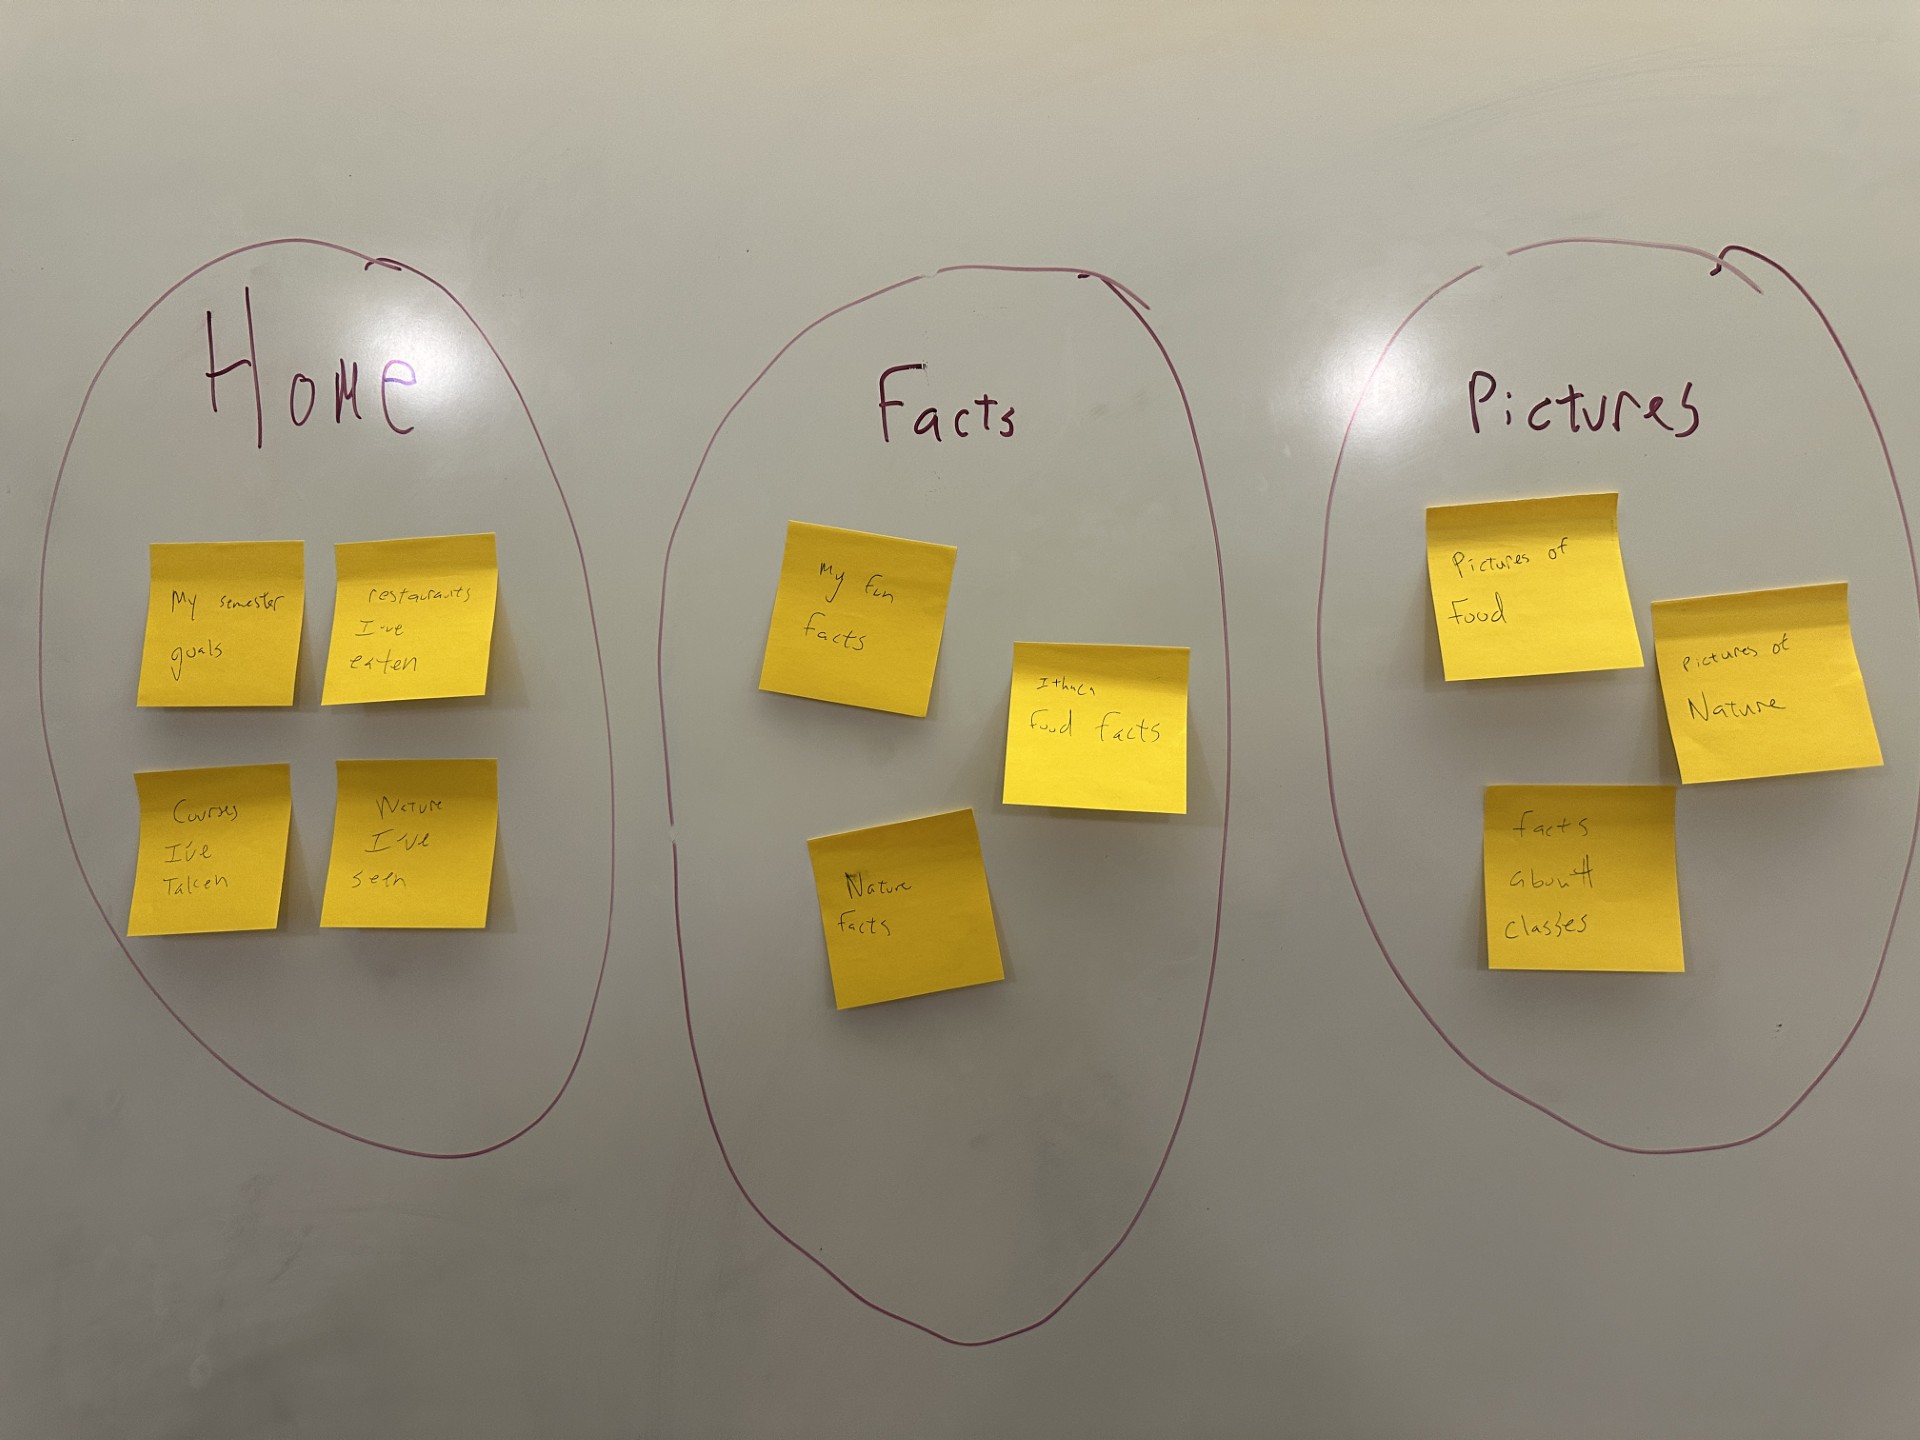 Home
My semester
goals
restaurants
I've
eaten
Courses
I've
Taken
Nature
I've
seen
Facts
My fun
facts
Ithaca
Food facts
Nature
facts
Pictures
Pictures of
Food
Pictures of
Nature
facts
about
classes